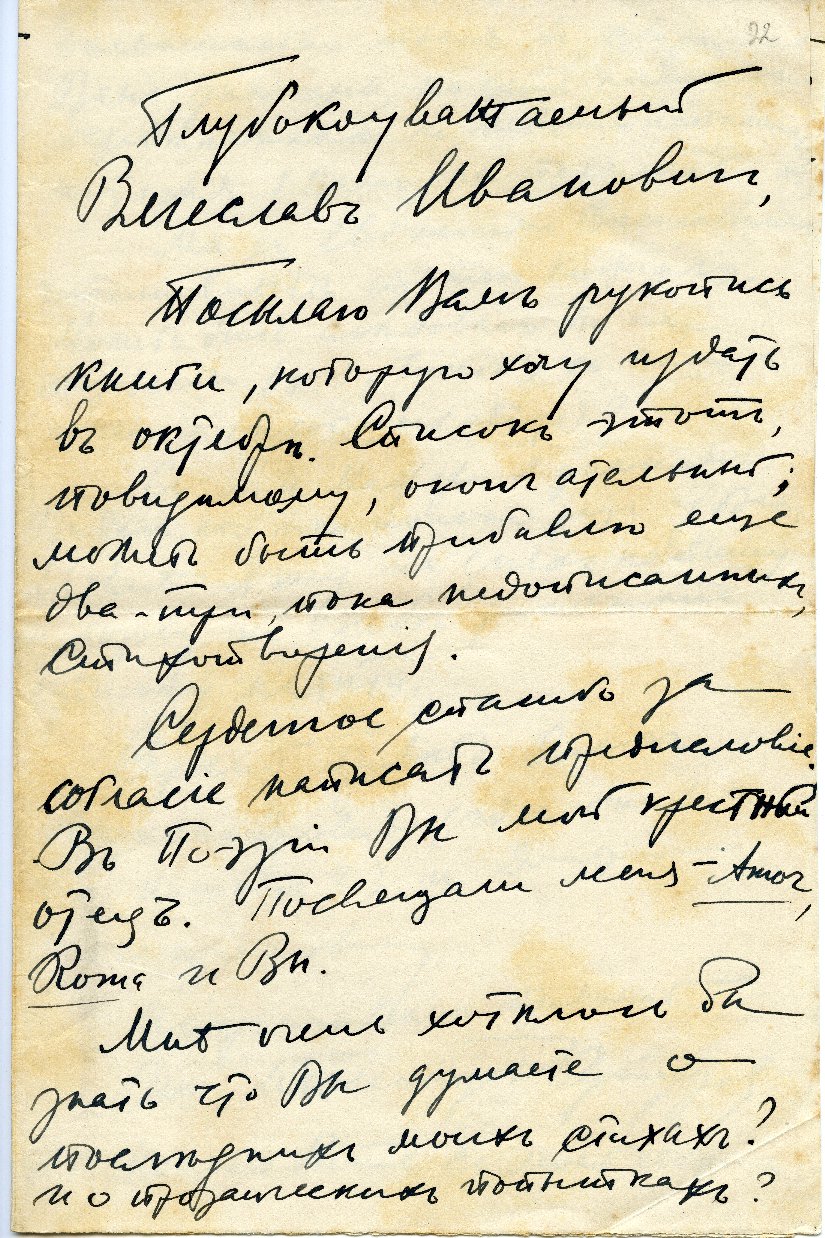 22
Глубокоуважаемый
Вячеславъ Ивановичъ,
Посылаю Вамъ рукопись
книги, которую хочу издать
въ октябрѣ. Списокъ этотъ,
повидимому, окончательный;
можетъ быть прибавлю еще
два-три, пока недописанныхъ,
стихотворенія.
Сердечное спасибо за
согласіе написать предисловіе.
Въ Поэзіи Вы мой крестный
отецъ. Посвящали меня – Amor,
Roma и Вы.
Мнѣ очень хотѣлось бы
знать что Вы думаете о
послѣднихъ моихъ стихахъ?
и о прозаическихъ попыткахъ?